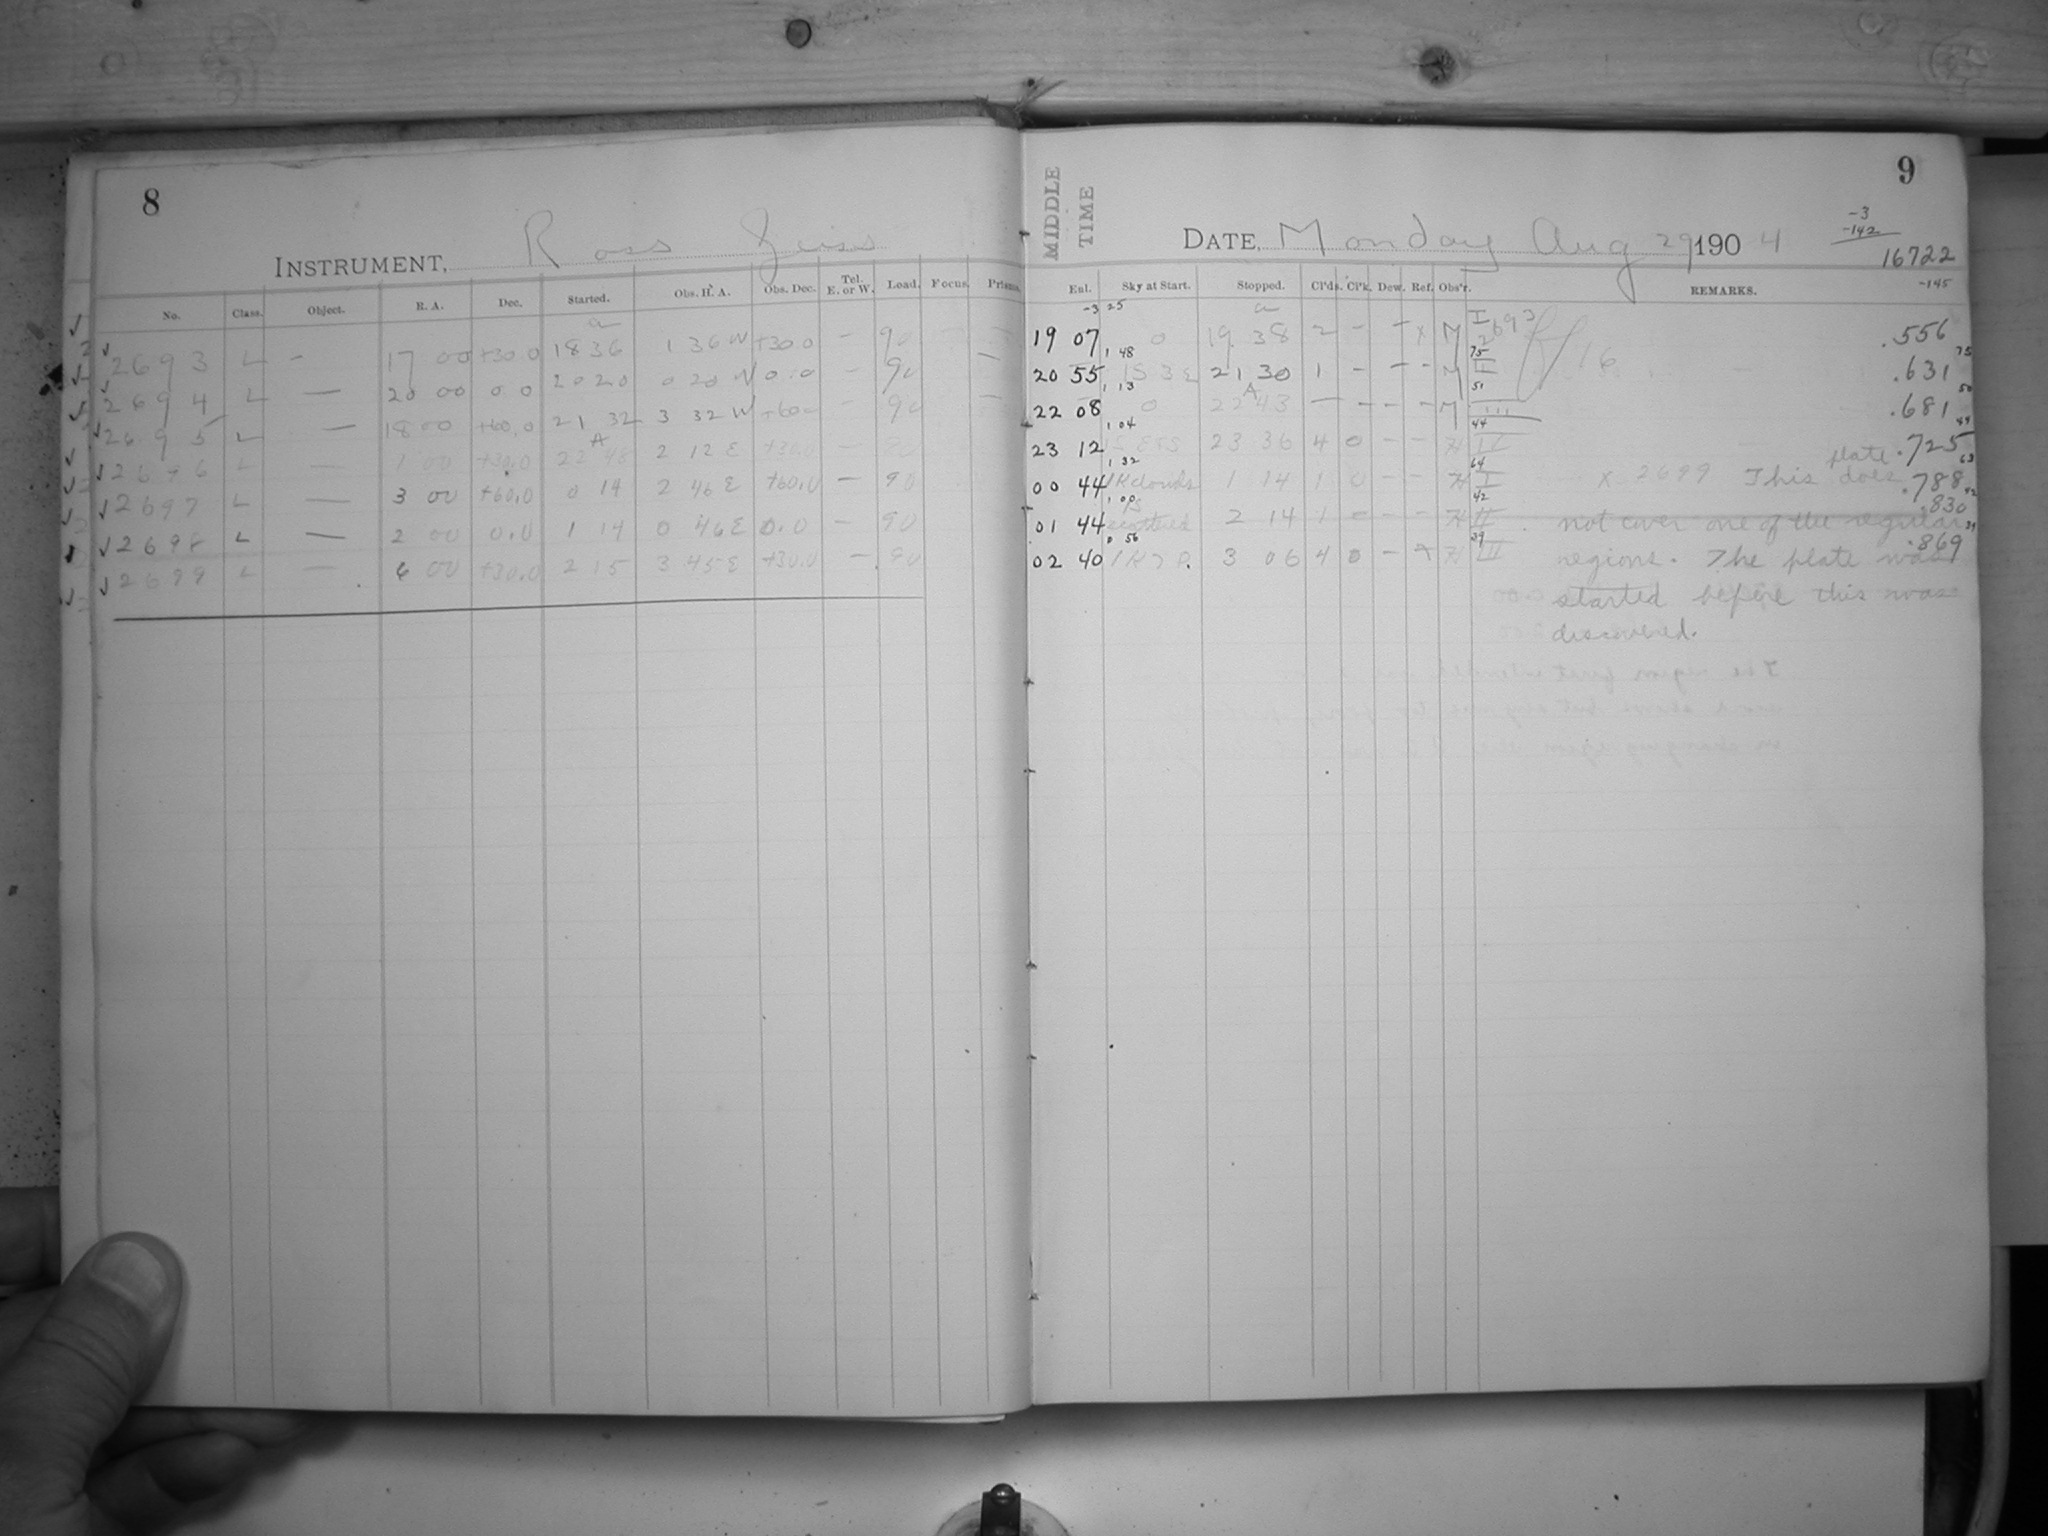 8
INSTRUMENT, Ross Zeiss
No. Class. Object. R. A. Dec. Started. Obs. H. A. Obs. Dec. Tel. E. or W. Load. Focus. Prisms.
2693 L – 17 00 +30.0 18 36 1 36 W +30.0 – 90
2694 L — 20 00 0.0 20 20 0 20 W 0.0 – 90
2695 L — 18 00 +60.0 21 32 3 32 W +60 – 90
2696 L — 1 00 +30.0 22 48 2 12 E +30.0 – 90
2697 L — 3 00 +60.0 0 14 2 46 E +60.0 – 90
2698 L — 2 00 0.0 1 14 0 46 E 0.0 – 90
2699 L — 6 00 +30.0 2 15 3 45 E +30.0 – 90
9
MIDDLE TIME
DATE, Monday Aug 29 1904
-3
-142
16722
-145
Exl. Sky at Start. Stopped. Cl'ds. Cl'k. Dew. Ref. Obs'r. REMARKS.
-3 25
19 07 0 19 38 2 – – x M I 2693 16 .556
1 48 75 75
20 55 21 30 1 – – – M II .631
1 13 51 50
22 08 0 22 43 – – – – M III .681
1 04 44 44
23 12 23 36 4 0 – – H IV plate .725
1 32 64 63
00 44 1K clouds 1 14 1 0 – – H I x 2699 This does .788
1 00 42 42
01 44 scattered 2 14 1 0 – – H II not cover one of the regular .830
0 56 39 39
02 40 3 06 4 0 – x H III regions. The plate was .869
started before this was
discovered.